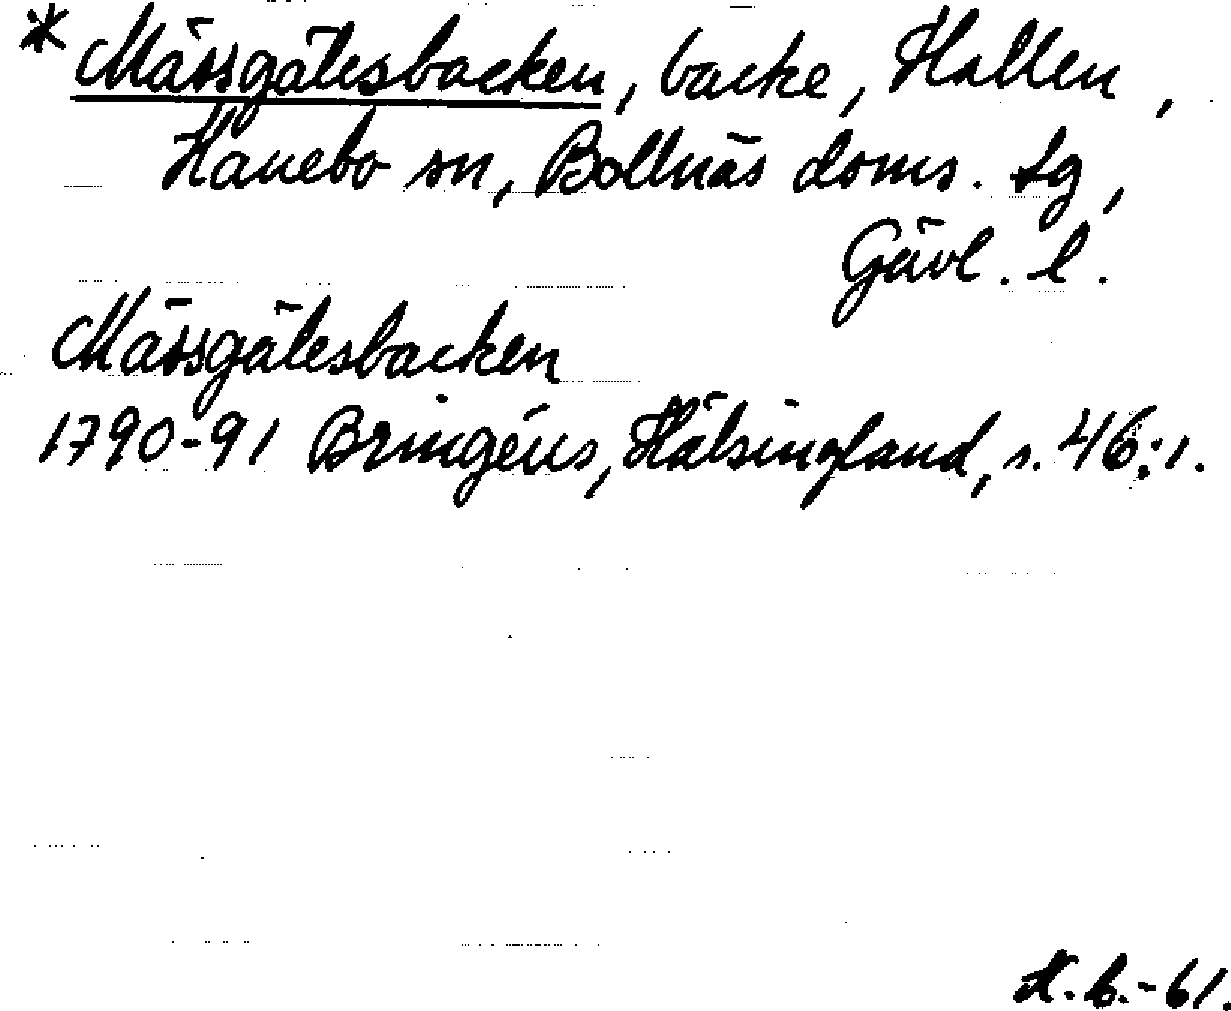 * Mässgätesbacken, backe, Hallen,
Hanebo sn, Bollnäs doms. tg,
Gävl. l.
Mässgätesbacken
1790-91 Bringéus, Hälsingland, s. 46:1.
H.b.-61.